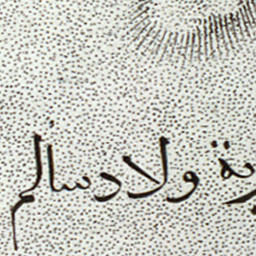 ولاد سالم